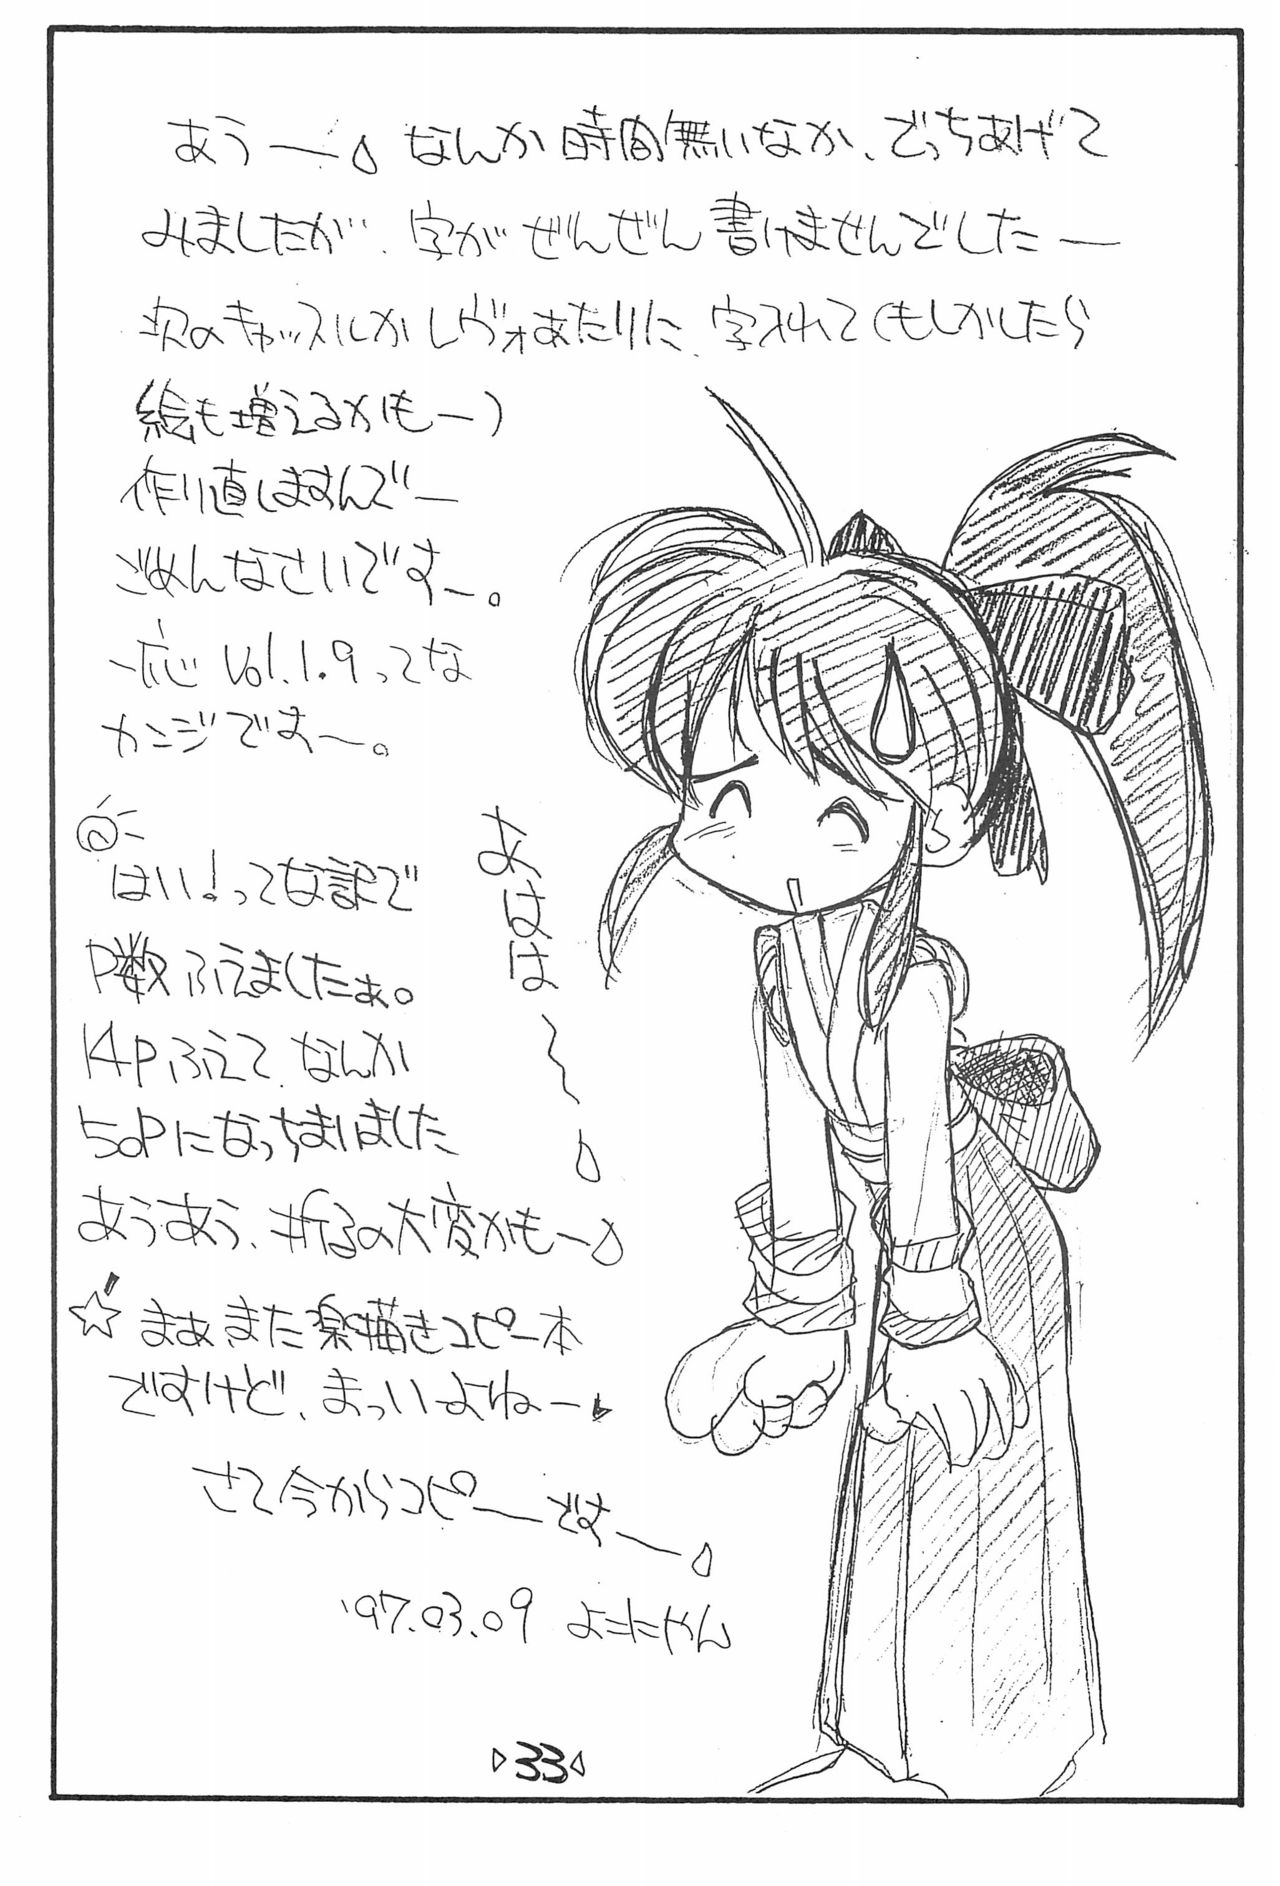 あうー なんか時間無いなか、でっちあげて
みましたが、字がぜんぜん書けませんでしたー
次のキャッスルかレヴォあたりに、字入れて(もしかしたら
絵も増えるかもー)
作り直しますんでー
ごめんなさいですー。
一応 Vol.1.9ってな
カンジですー。
はい!ってな訳で
P数ふえましたぁ。
14Pふえて、なんか
50Pになっちまいました
あうあう、折るの大変かもー
☆まぁまた楽描きコピー本
ですけど、まっいよねー
さて今からコピーですー
あはは〜
'97.03.09 よこたやん
▷33◁